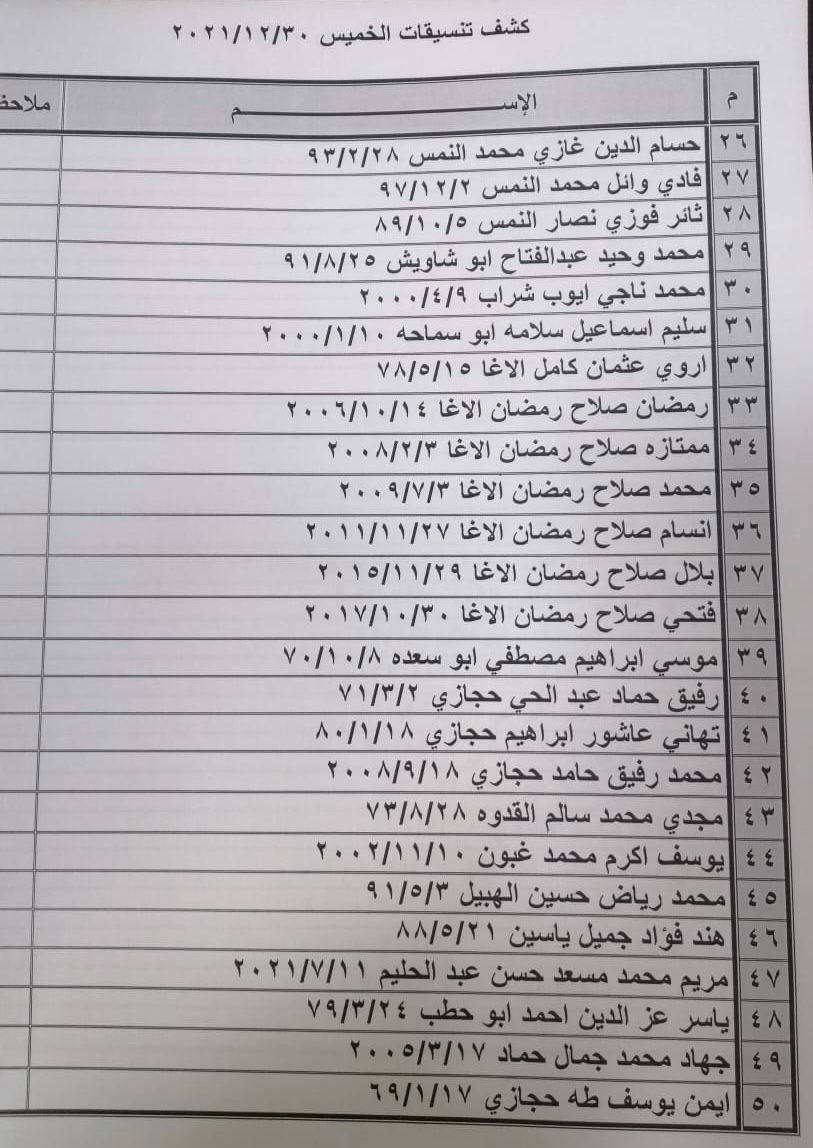 كشف تنسيقات الخميس ٢٠٢١/١٢/٣٠
م الإســـم ملاحظ
٢٦ حسام الدين غازي محمد النمس ٩٣/٢/٢٨
٢٧ فادي وائل محمد النمس ٩٧/١٢/٢
٢٨ ثائر فوزي نصار النمس ٨٩/١٠/٥
٢٩ محمد وحيد عبدالفتاح ابو شاويش ٩١/٨/٢٥
٣٠ محمد ناجي ايوب شراب ٢٠٠٠/٤/٩
٣١ سليم اسماعيل سلامه ابو سماحه ٢٠٠٠/١/١٠
٣٢ اروي عثمان كامل الاغا ٧٨/٥/١٥
٣٣ رمضان صلاح رمضان الاغا ٢٠٠٦/١٠/١٤
٣٤ ممتازه صلاح رمضان الاغا ٢٠٠٨/٢/٣
٣٥ محمد صلاح رمضان الاغا ٢٠٠٩/٧/٣
٣٦ انسام صلاح رمضان الاغا ٢٠١١/١١/٢٧
٣٧ بلال صلاح رمضان الاغا ٢٠١٥/١١/٢٩
٣٨ فتحي صلاح رمضان الاغا ٢٠١٧/١٠/٣٠
٣٩ موسي ابراهيم مصطفي ابو سعده ٧٠/١٠/٨
٤٠ رفيق حماد عبد الحي حجازي ٧١/٣/٢
٤١ تهاني عاشور ابراهيم حجازي ٨٠/١/١٨
٤٢ محمد رفيق حامد حجازي ٢٠٠٨/٩/١٨
٤٣ مجدي محمد سالم القدوه ٧٣/٨/٢٨
٤٤ يوسف اكرم محمد غبون ٢٠٠٢/١١/١٠
٤٥ محمد رياض حسين الهبيل ٩١/٥/٣
٤٦ هند فؤاد جميل ياسين ٨٨/٥/٢١
٤٧ مريم محمد مسعد حسن عبد الحليم ٢٠٢١/٧/١١
٤٨ ياسر عز الدين احمد ابو حطب ٧٩/٣/٢٤
٤٩ جهاد محمد جمال حماد ٢٠٠٥/٣/١٧
٥٠ ايمن يوسف طه حجازي ٦٩/١/١٧